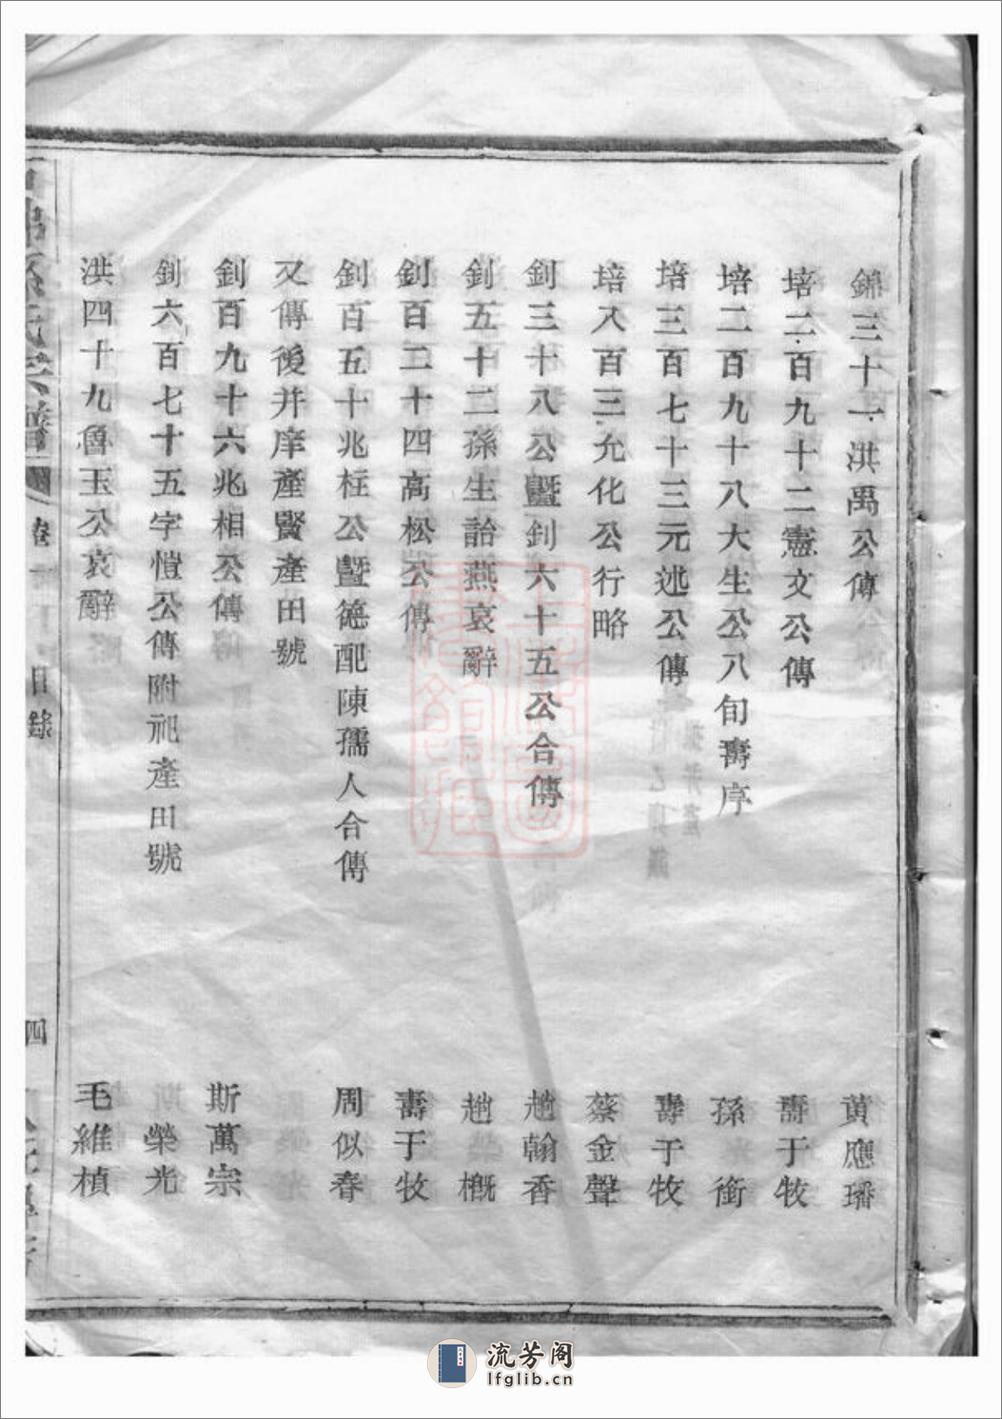 錦三十一洪禹公傳 黄應璠
培二百九十二憲文公傳 壽于牧
培二百九十八大生公八旬壽序 孫銜
培三百七十三元述公傳 壽于牧
培八百三允化公行略 蔡金聲
釗三十八公暨釗六十五公合傳 趙翰香
釗五十二孫生詒燕哀辭 趙槪
釗百二十四高松公傳 壽于牧
釗百五十兆枉公暨德配陳孺人合傳 周似春
又傳後并庠產賢產田號
釗百九十六兆相公傳 斯萬宗
釗六百七十五字愷公傳附祀產田號 榮光
洪四十九魯玉公哀辭 毛維楨
氏宗譜 卷一 目錄 四
流芳阁
lfglib.cn